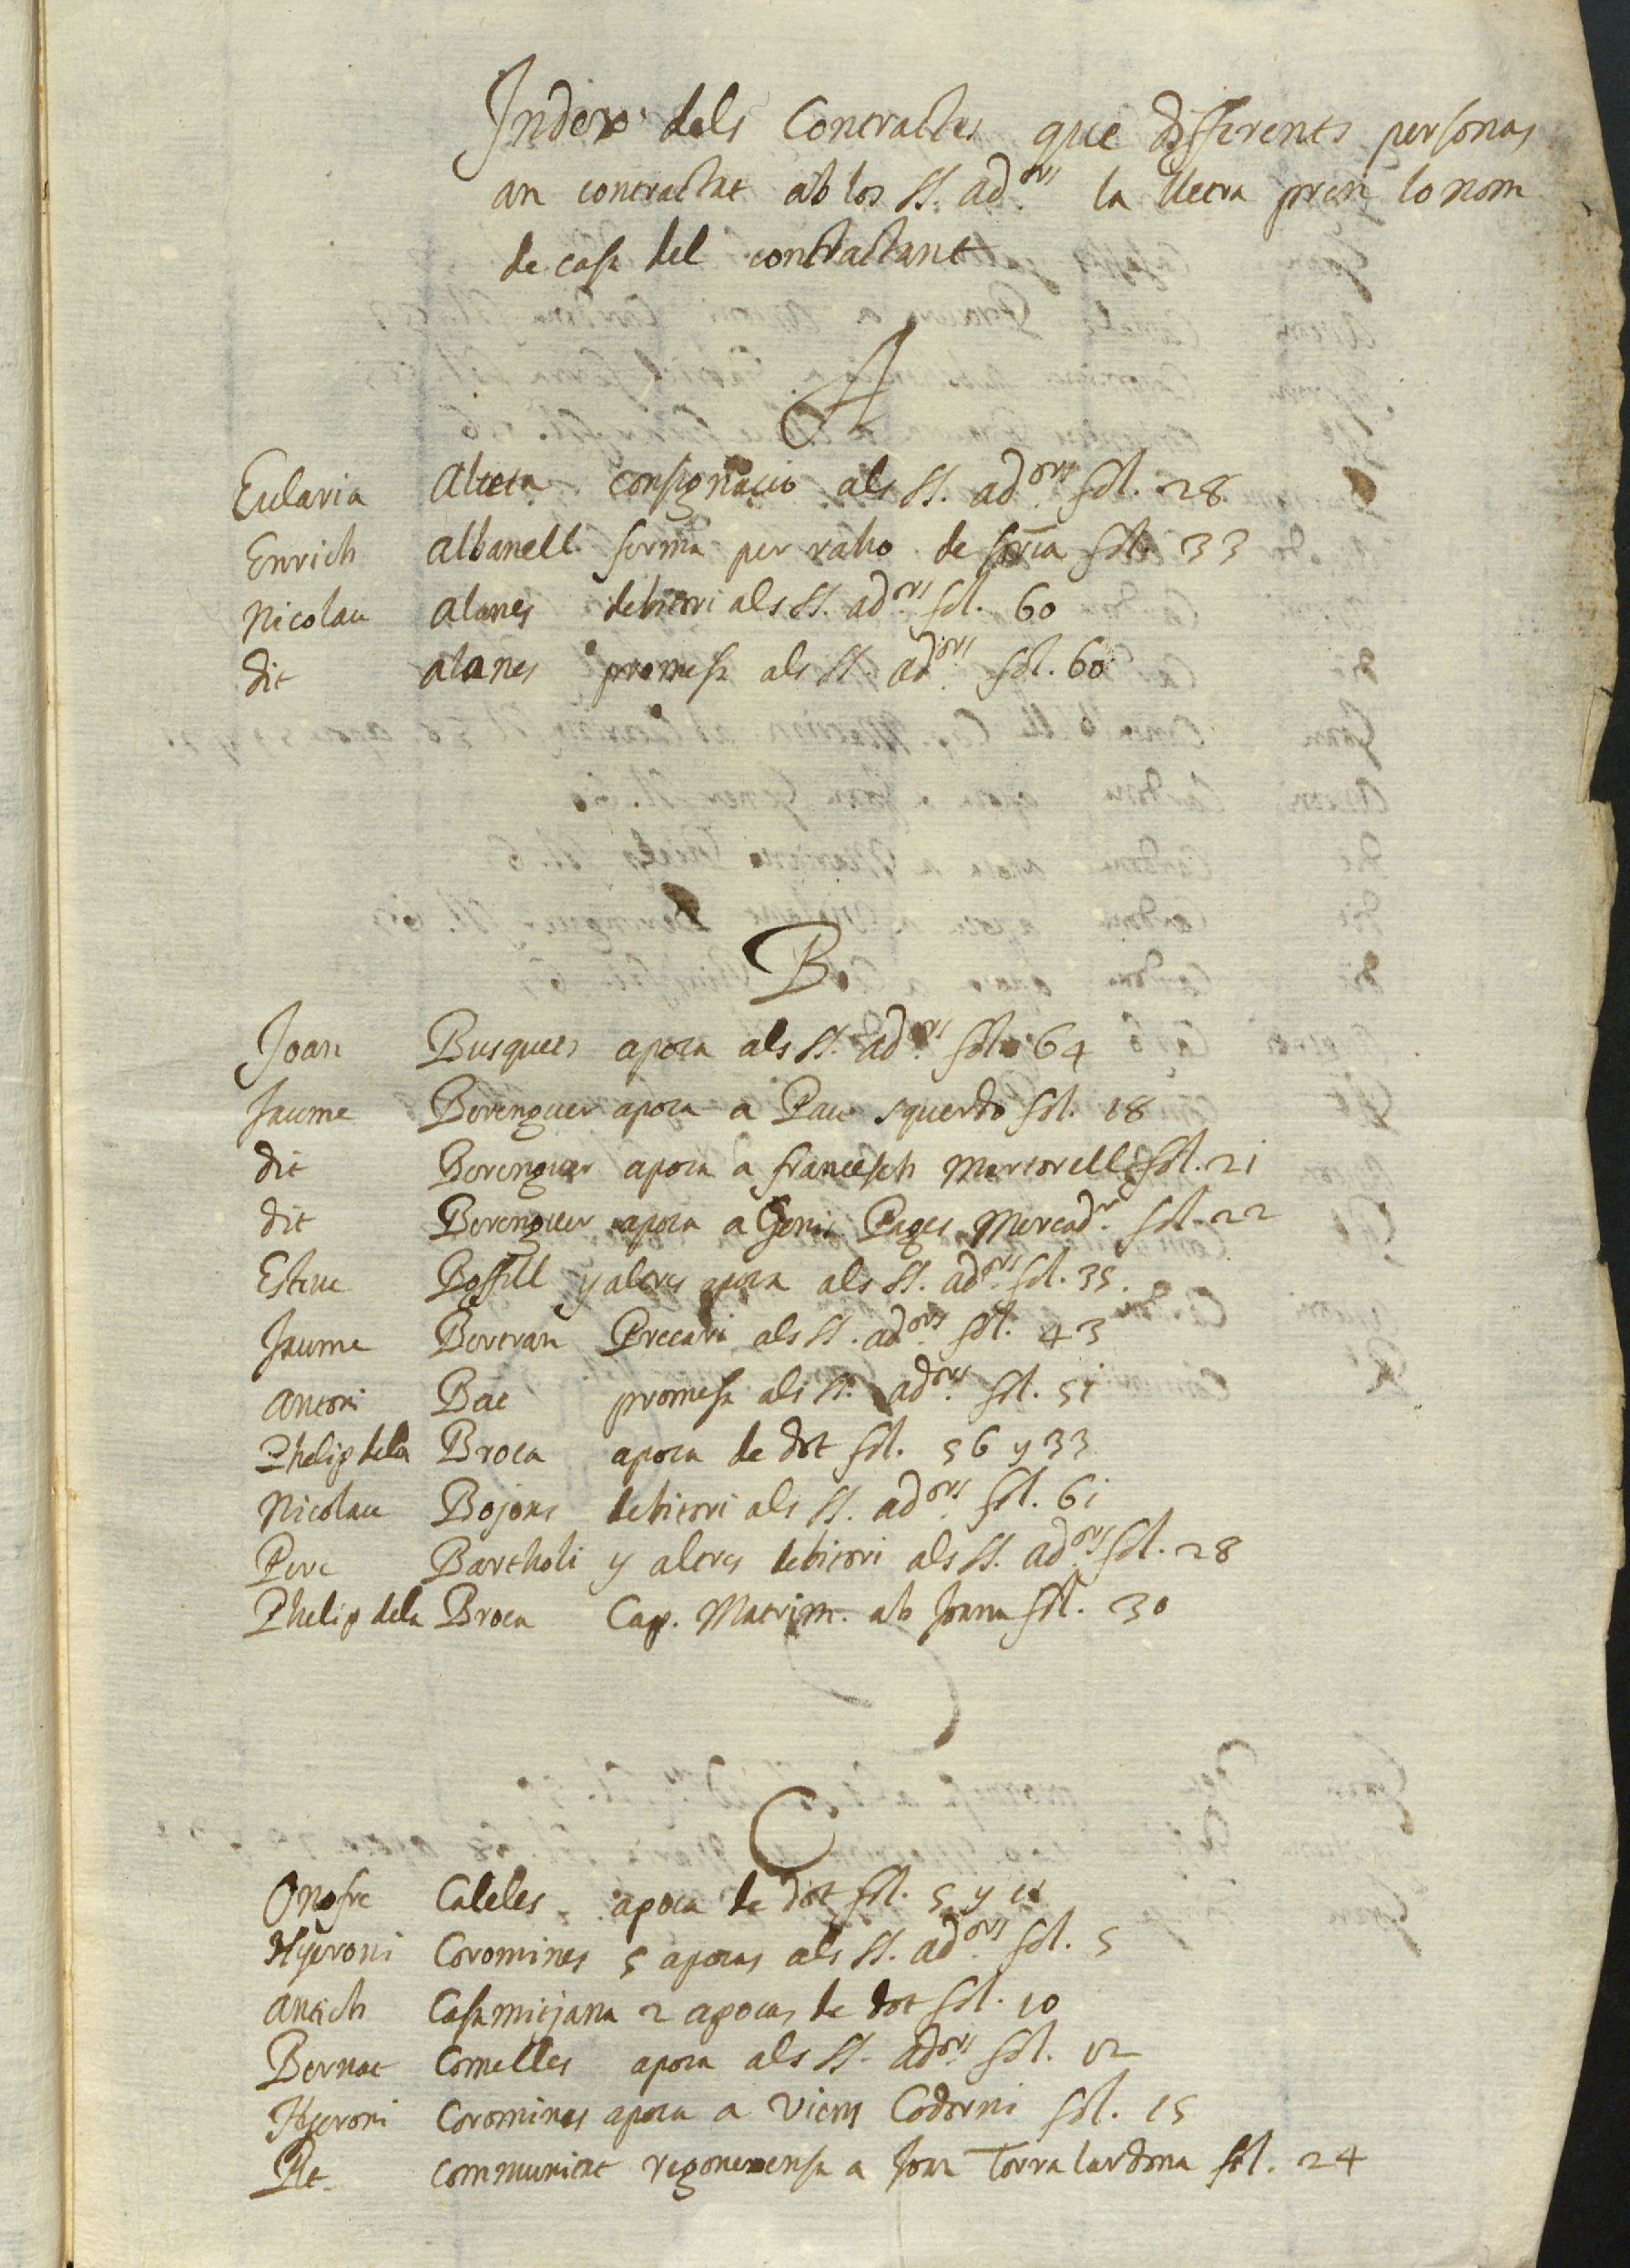 Index dels Contractes que differents personas
an contractat ab los SS. ad.ors la lletra pren lo nom
de casa del contractant
A
Eularia Alteta consignacio als SS. ad.ors fol. 28
Enrich Albanell ferma per raho de fol. 33
Nicolau Alanes debitori als SS. ad.ors fol. 60
dit alanes promesa als SS. ad.ors fol. 60
B.
Joan Busquets apoca als SS. ad.ors fol. 64
Jaume Berenguer apoca a Pau squerdo fol. 18
dit Berenguer apoca a francesch Martorell fol. 21
dit Berenguer apoca a Genis Pages Mercad.r fol. 22
Esteve Boffill y altres apoca als SS. ad.ors fol. 35.
Jaume Bertran Precari als SS. ad.ors fol. 43
Antoni Bac promesa als SS. ad.ors fol. 51
Phelip dela Broca apoca de dot fol. 56 y 33
Nicolau Bojons debitori als SS. ad.ors fol. 61
Pere Bartholi y altres debitori als SS. ad.ors fol. 28
Phelip dela Broca Cap. Matrim. ab Joana fol. 30
C
Onofre Caleles apoca de dot fol. 5 y 11
Hyeroni Coromines 5 apocas als SS. ad.ors fol. 5
Antich Casamitjana 2 apocas de dot fol. 10
Bernat Comelles apoca als SS. ad.ors fol. 12
Hyeroni Corominas apoca a Vicens Codorni fol. 15
Rt. Communitat regonexensa a Joan Torra lardona fol. 24